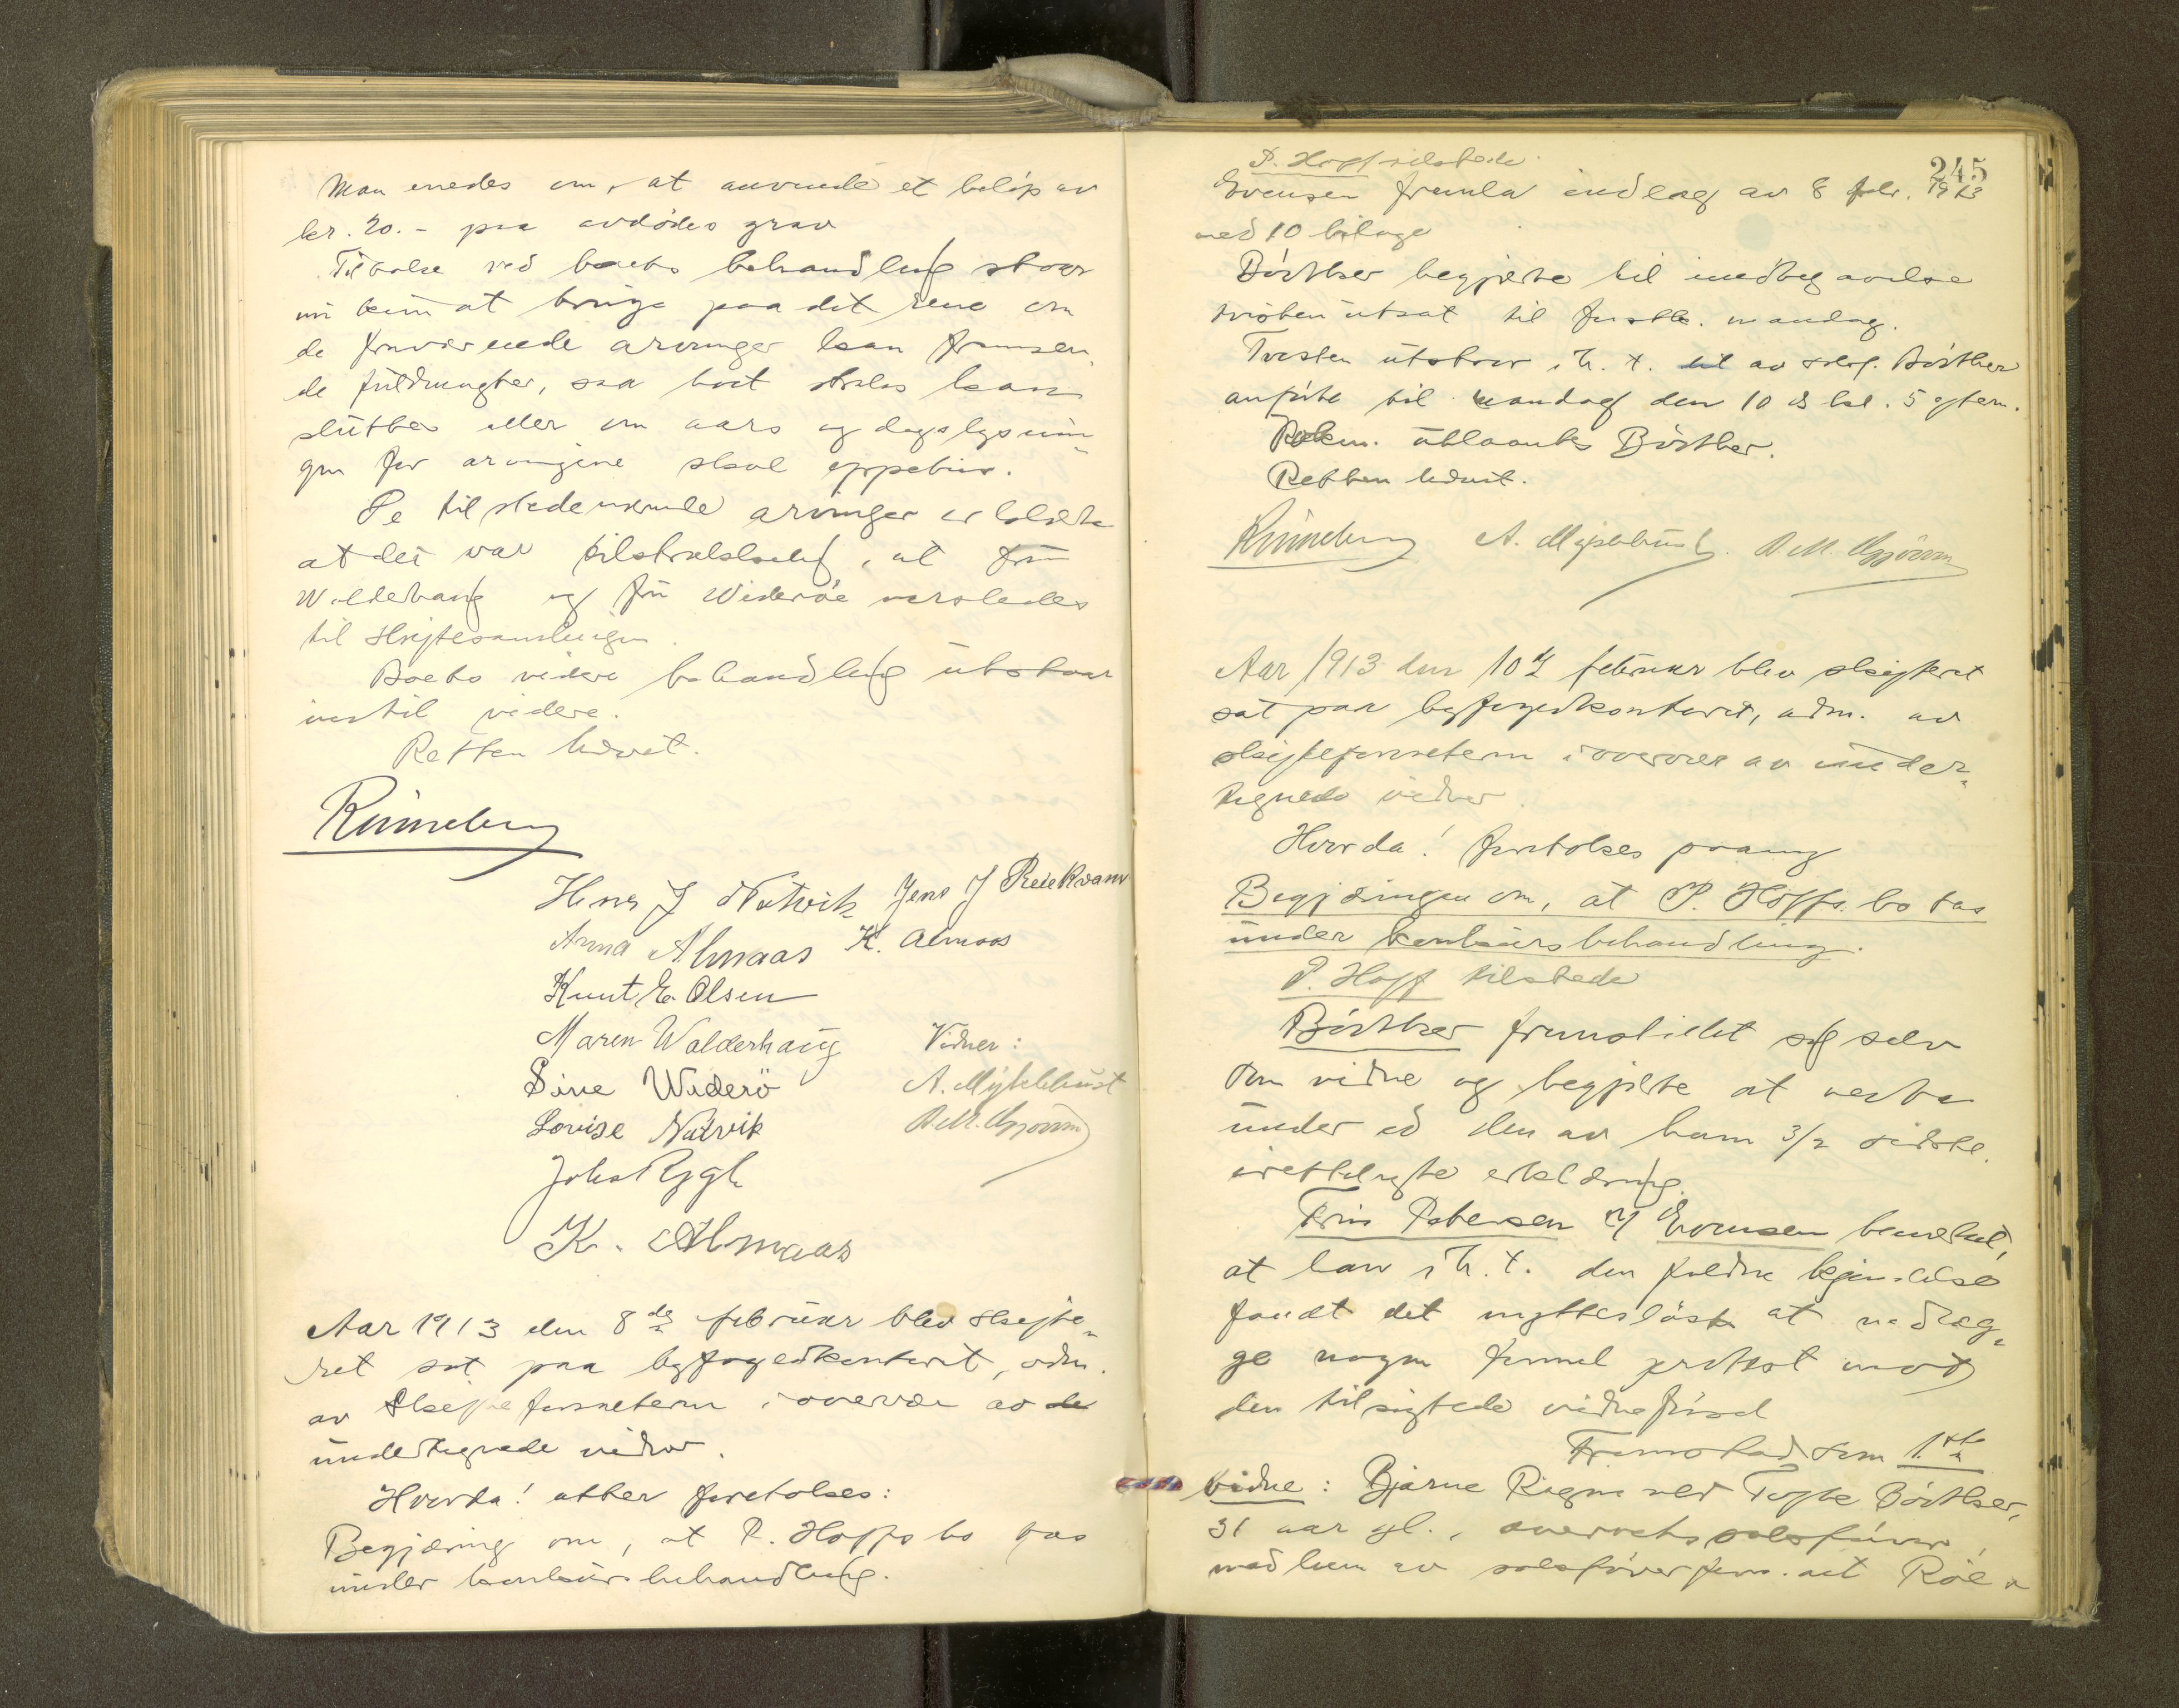 Man enedes om, at anvende et beløp av
kr. 20.- paa avdødes grav
Tilbake ved boets behandling staar
nu kun at bringe paa det rene om
de fraværende arvinger kan fremsen-
de fuldmagter, saa boet straks kan
sluttes eller om aars og dags lysnin-
gen for arvingene skal oppebies.
De tilstedeværende arvinger erklærte
at det var tilstrækkelig, at fru
Walderhaug og fru Widerøe varsledes
til skiftesamlingen.
Boets videre behandling utstaar
indtil videre.
Retten hævet.
Rinneberg
Hans J Natvik Jens J Reiekvam
Anna Almaas K. Almaas
Knut E. Olsen
Maren Walderhaug Vidner:
Sine Widerö A. Myklebust
Lovise Natvik
Johs Rygh
K. Almaas
Aar 1913 den 8de februar blev skifte-
ret sat paa byfogedkontoret, adm.
av skifteforvalteren i overvær av de
undertegnede vidner.
Hvorda! atter foretokes:
Begjæring om, at P. Hoffs bo tas
under konkursbehandling.
245
P. Hoff tilstede
Evensen fremla indlæg av 8 febr. 1913
med 10 bilage
Börther begjærte til imötegaaelse
tvisten utsat til førstk. mandag.
Tvisten utstaar i h. t. det av sakf. Börther
anførte til mandag den 10 ds kl. 5 eftm.
Dokum. utlaantes Börther.
Retten hævet.
Rinneberg A. Myklebust.
Aar 1913 den 10de februar blev skifteret
sat paa byfogedkontoret, adm. av
skifteforvalteren i overvær av under-
tegnede vidner.
Hvorda! foretokes paany
Begjæringen om, at P. Hoffs bo tas
under konkursbehandling.
P. Hoff tilstede
Börther fremstillet sig selv
som vidne og begjærte at vedta
under ed den av ham 3/2 sidstl.
iretlagte erklæring.
Evensen bemerket,
at han i h. t. den faldne kjendelse
fandt det nytteslöst at nedlæg-
ge nogen formel protest mot
den tilsigtede vidneførsel
Fremstod som 1ste
vidne: Bjarne Rignald Tofte Börther,
31 aar gl., overretssakfører,
medlem av sakförerfirmaet